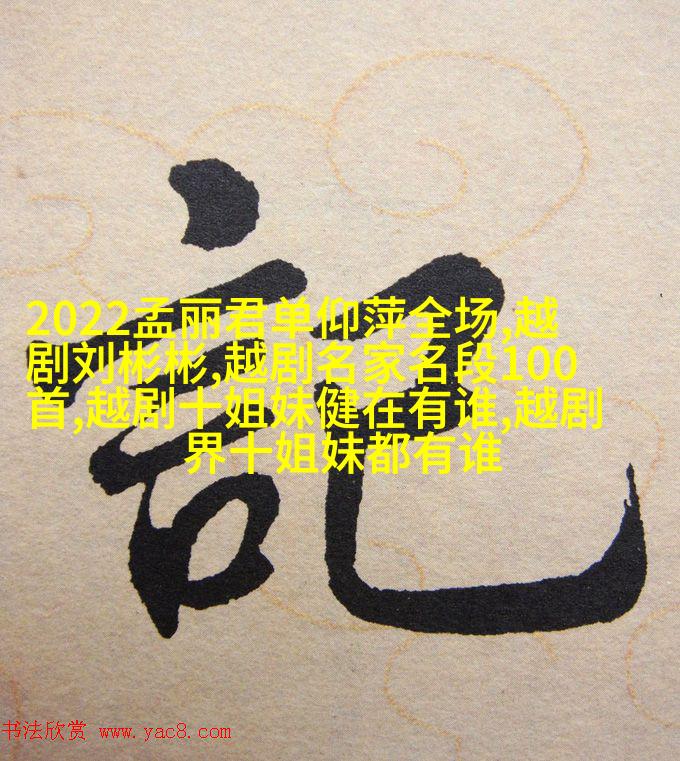 記
2022孟丽君单仰萍全场,越
剧刘彬彬,越剧名家名段100
首,越剧十姐妹健在有谁,越剧
界十姐妹都有谁
书法欣赏 www.yac8.com